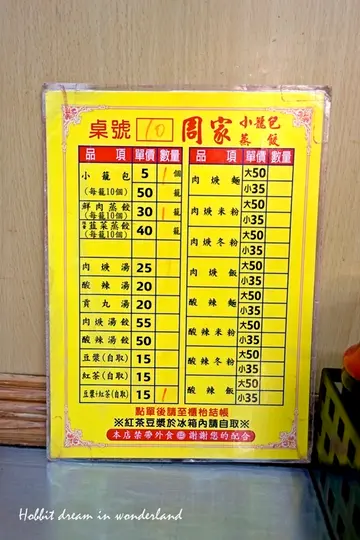 桌號 10 周家 小籠包 蒸餃
品項 單價 數量
小籠包 5 1個
(每籠10個) 50 籠
鮮肉蒸餃 (每籠10個) 30 1籠
韮菜蒸餃 (每籠10個) 40 籠
肉焿湯 25 1
酸辣湯 20
貢丸湯 20
肉焿湯餃 55
酸辣湯餃 50
豆漿(自取) 15
紅茶(自取) 15
豆漿+紅茶(自取) 15 1
品項 單價 數量
肉焿麵 大50
小35
肉焿米粉 大50
小35
肉焿冬粉 大50
小35
肉焿飯 大50
小35
酸辣麵 大50
小35
酸辣米粉 大50
小35
酸辣冬粉 大50
小35
酸辣飯 大50
小35
點單後請至櫃枱結帳
※紅茶豆漿於冰箱內請自取※
本店禁帶外食 謝謝您的配合
Hobbit dream in wonderland